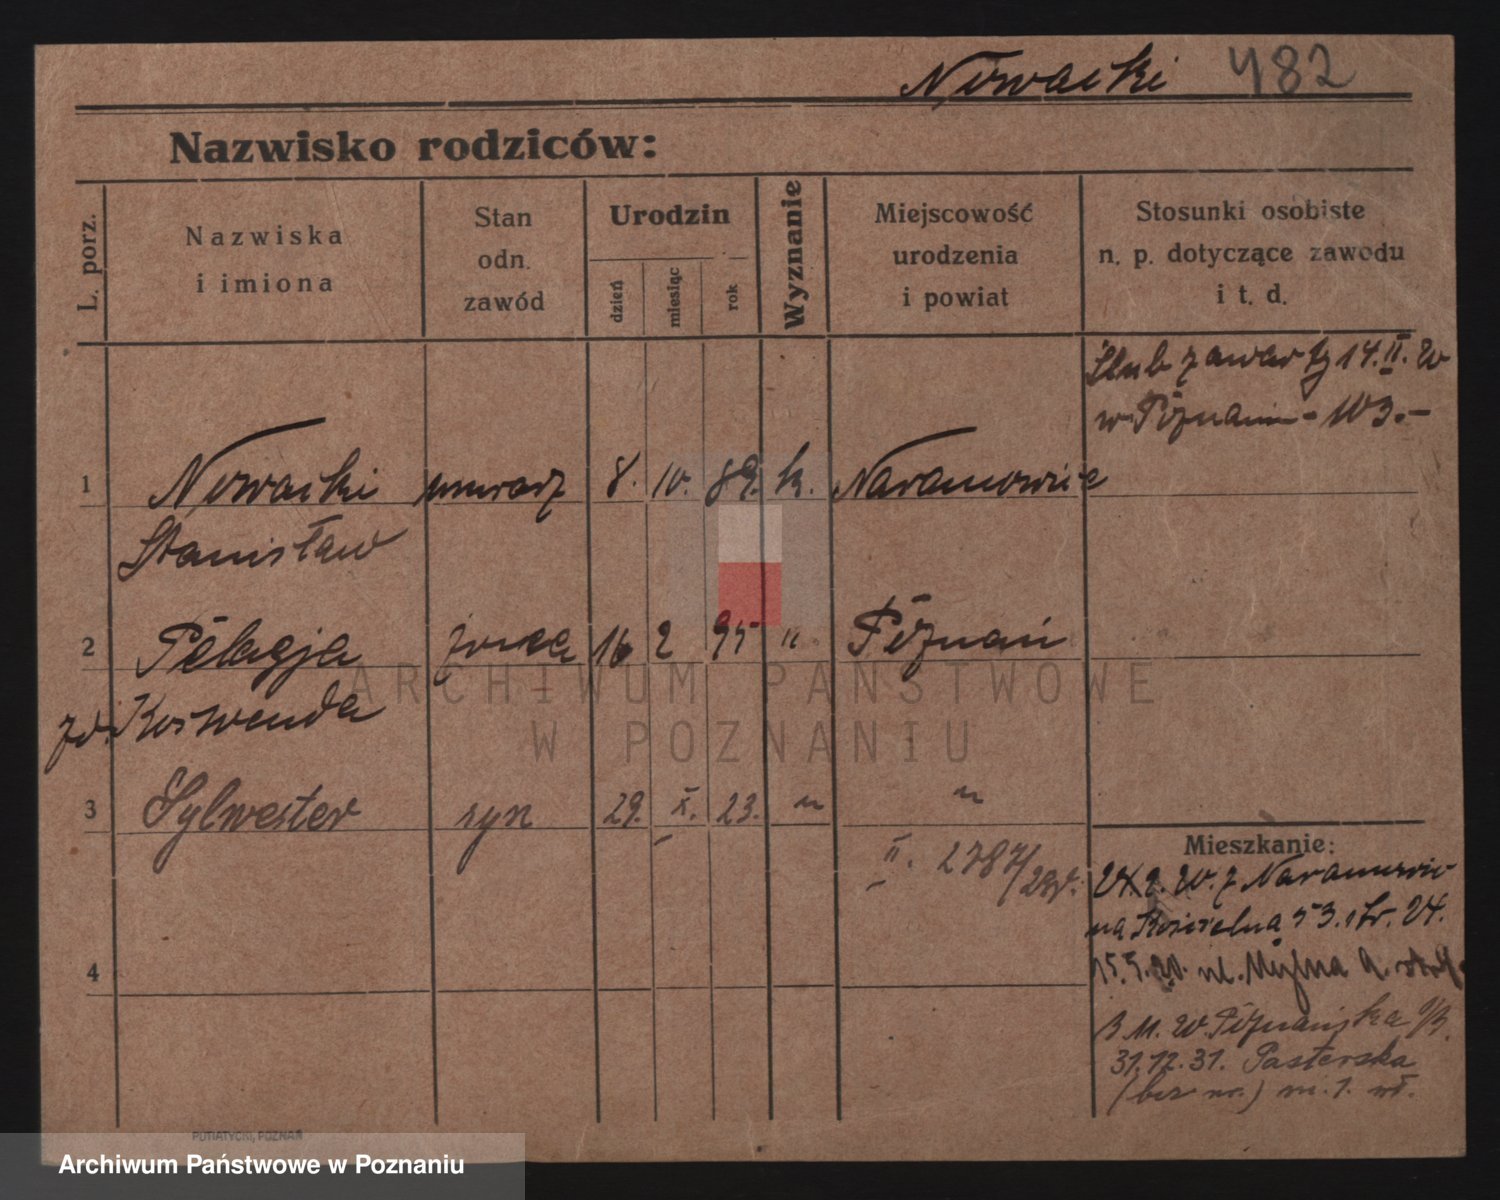 Nowacki 482
Nazwisko rodziców:
L. porz.
Nazwiska
i imiona
Stan
odn.
zawód
Urodzin
dzień
miesiąc
rok
Wyznanie
Miejscowość
urodzenia
i powiat
Stosunki osobiste
n. p. dotyczące zawodu
i t. d.
Ślub zawarty 14. II. 20
w Poznaniu - 103.-
1 Nowacki murarz 8. 10. 89. k. Naramowice
Stanisław
2 Pelagja żona 16 2 95 " Poznań
zd. Koswenda
3 Sylwester syn 29. X. 23. " "
II. 2787/
Mieszkanie:
20. z Naramowic
na Kościelna 53. 24.
15.5. ul. Młyńska
Poznańska
31.12.31. Pasterska
(bez nr.) m. 1. wł.
4
PUTIATYCKI, POZNAŃ
ARCHIWUM PAŃSTWOWE
W POZNANIU
Archiwum Państwowe w Poznaniu